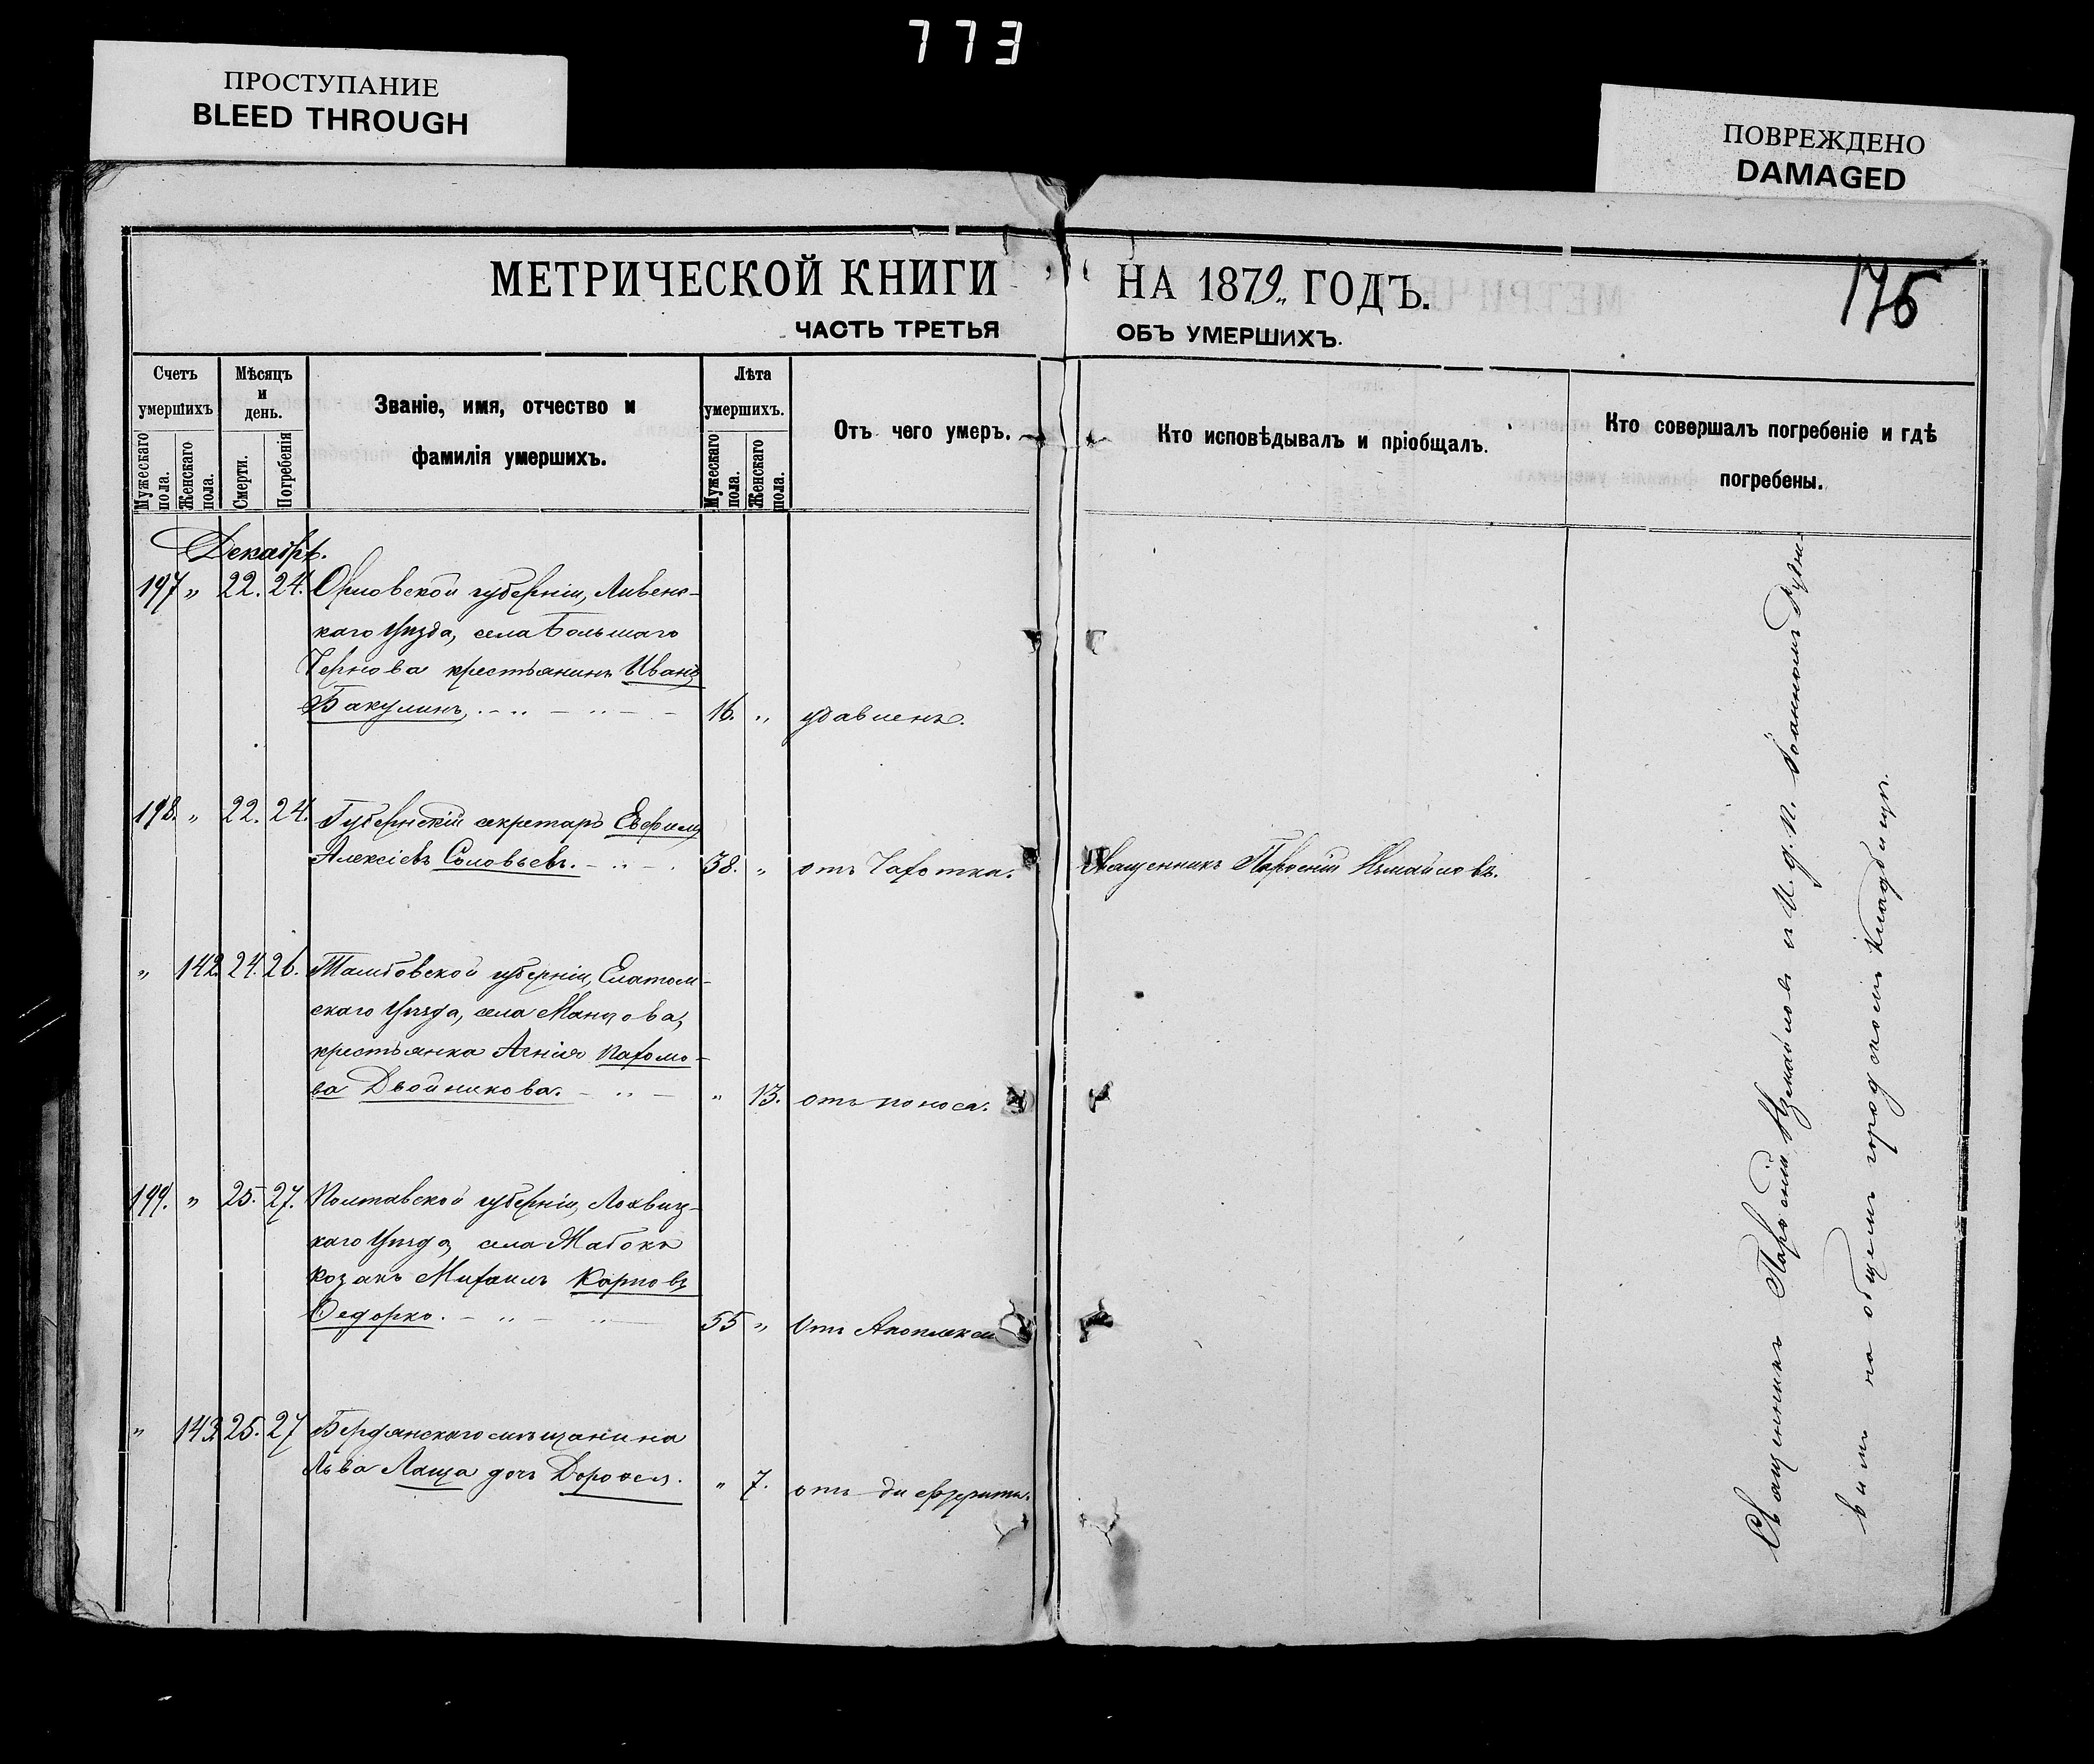 773
ПРОСТУПАНИЕ
BLEED THROUGH
ПОВРЕЖДЕНО
DAMAGED
МЕТРИЧЕСКОЙ КНИГИ НА 1879 ГОДЪ.
ЧАСТЬ ТРЕТЬЯ ОБЪ УМЕРШИХЪ.
175
Счетъ умершихъ
Мужескаго пола.
Женскаго пола.
Мѣсяцъ и день.
Смерти.
Погребенія
Званіе, имя, отчество и
фамилія умершихъ.
Лѣта умершихъ.
Мужескаго пола.
Женскаго пола.
Отъ чего умеръ.
Кто исповѣдывалъ и пріобщалъ.
Кто совершалъ погребеніе и гдѣ
погребены.
Декабрь.
197 " 22. 24. Орловской губерніи, Ливенс-
каго Уѣзда, села Большаго
Чернова крестьянинъ Иванъ
Бакулинъ, 16. " удавленъ.
198. " 22. 24. Губернскій секретарь
Алексіевъ Соловьевъ. 38. " отъ Чахотки. Священникъ Парѳеній Измайловъ.
" 142 24. 26. Тамбовской губерніи, Елатом-
скаго Уѣзда, села
крестьянка Агнія Пахомо-
ва Двойникова. " 13. отъ поноса.
199. " 25. 27. Полтавской губерніи, Лохвиц-
каго Уѣзда, села Жабокъ
козакъ Михаилъ Карповъ
Федорко. 55 " Отъ Апоплексіи
" 143 25. 27 Бердянскаго мѣщанина
Льва Лаща дочь Дороѳея. " 7. отъ дифтерита.
Священникъ Парѳеній Измайловъ и И. д. п. Іоанномъ
вимъ на общемъ городскомъ кладбищѣ.